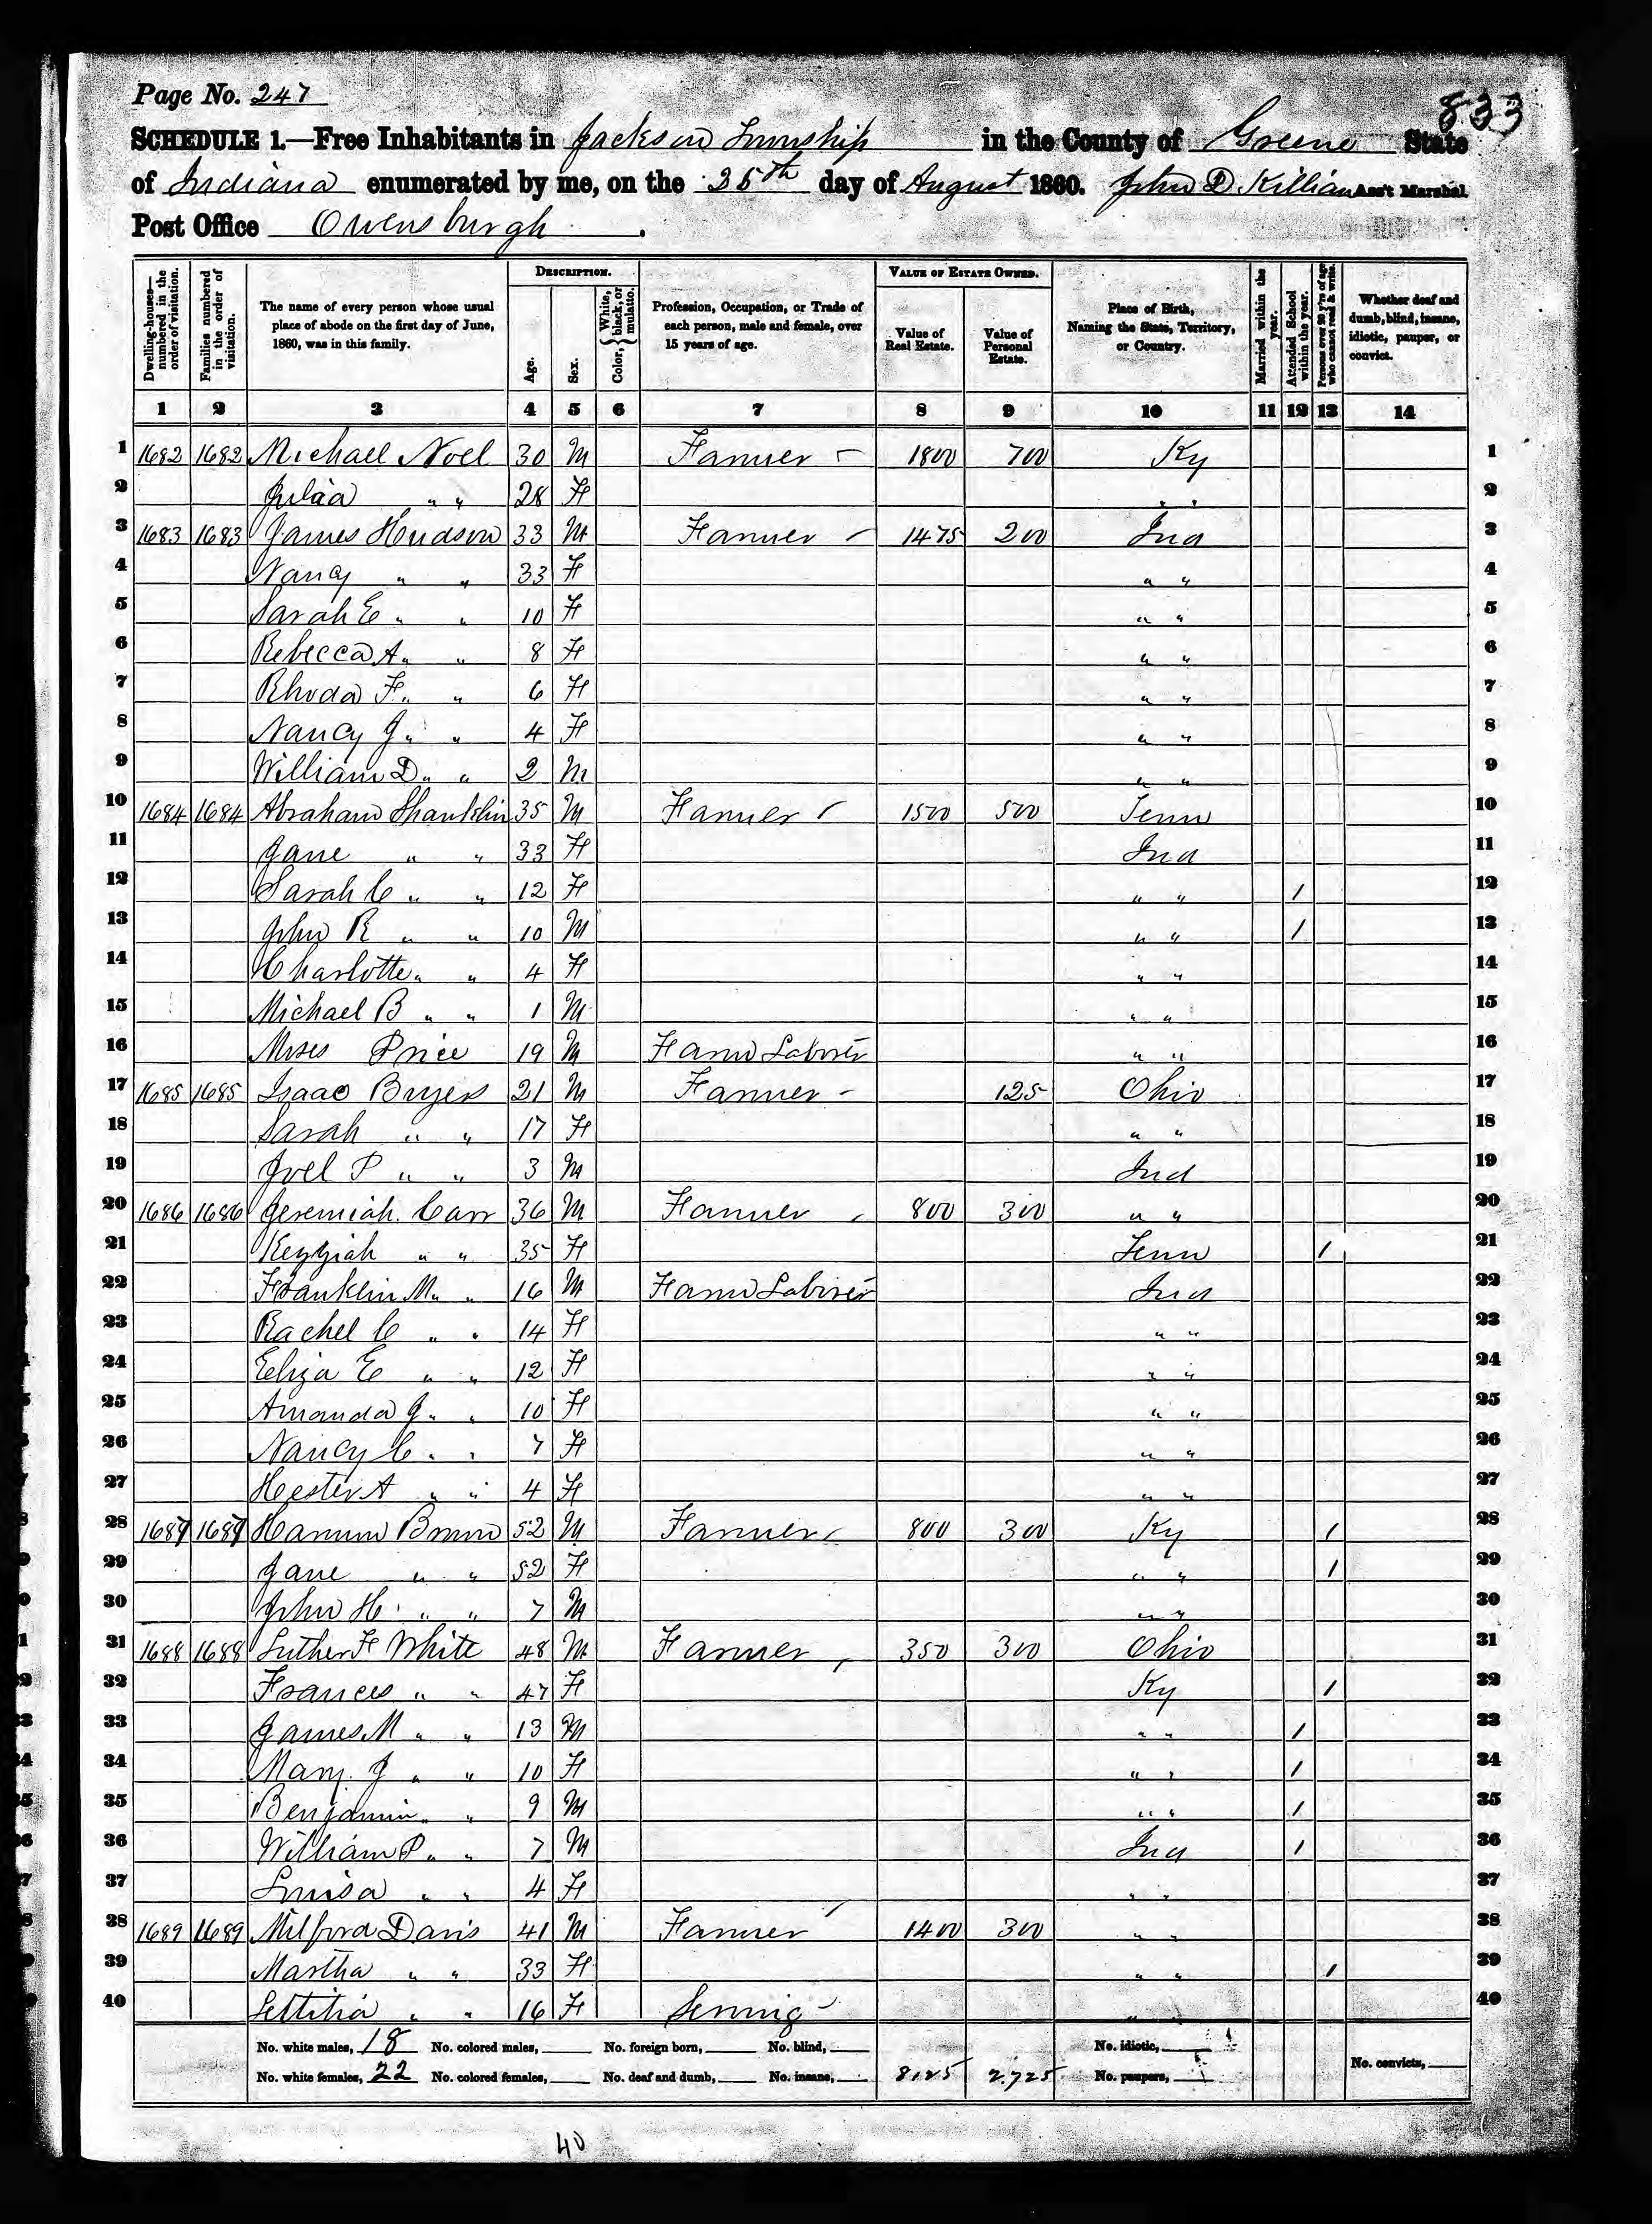 Page No. 247
833
SCHEDULE 1.—Free Inhabitants in Jackson Township in the County of Greene State
of Indiana enumerated by me, on the 25th day of August 1860. John D. Killian Ass't Marshal.
Post Office Owensburgh.
Dwelling-houses—numbered in the order of visitation.
Families numbered in the order of visitation.
The name of every person whose usual place of abode on the first day of June, 1860, was in this family.
DESCRIPTION.
Age.
Sex.
Color, { White, black, or mulatto.
Profession, Occupation, or Trade of each person, male and female, over 15 years of age.
VALUE OF ESTATE OWNED.
Value of Real Estate.
Value of Personal Estate.
Place of Birth, Naming the State, Territory, or Country.
Married within the year.
Attended School within the year.
Persons over 20 y'rs of age who cannot read & write.
Whether deaf and dumb, blind, insane, idiotic, pauper, or convict.
1 2 3 4 5 6 7 8 9 10 11 12 13 14
1 1682 1682 Michael Noel 30 M Farmer 1800 700 Ky 1
2 Julia " " 28 F " " 2
3 1683 1683 James Hudson 33 M Farmer 1475 200 Ind 3
4 Nancy " " 33 F " " 4
5 Sarah E " " 10 F " " 5
6 Rebecca A " " 8 F " " 6
7 Rhoda F. " " 6 F " " 7
8 Nancy J " " 4 F " " 8
9 William D " " 2 M " " 9
10 1684 1684 Abraham Shanklin 35 M Farmer 1500 500 Tenn 10
11 Jane " " 33 F Ind 11
12 Sarah C " " 12 F " " / 12
13 John R " " 10 M " " / 13
14 Charlotte " " 4 F " " 14
15 Michael B " " 1 M " " 15
16 Moses Price 19 M Farm Laborer " " 16
17 1685 1685 Isaac Bryers 21 M Farmer 125 Ohio 17
18 Sarah " " 17 F " " 18
19 Joel P " " 3 M Ind 19
20 1686 1686 Jeremiah Carr 36 M Farmer 800 300 " " 20
21 Kezziah " " 35 F Tenn / 21
22 Franklin M " " 16 M Farm Laborer Ind 22
23 Rachel C " " 14 F " " 23
24 Eliza E " " 12 F " " 24
25 Amanda J " " 10 F " " 25
26 Nancy C " " 7 F " " 26
27 Hester A " " 4 F " " 27
28 1687 1687 Hannum Brown 52 M Farmer 800 300 Ky / 28
29 Jane " " 52 F " " / 29
30 John H " " 7 M " " 30
31 1688 1688 Luther F White 48 M Farmer 350 300 Ohio 31
32 Frances " " 47 F Ky / 32
33 James M " " 13 M " " / 33
34 Mary J " " 10 F " " / 34
35 Benjamin " " 9 M " " / 35
36 William P " " 7 M Ind / 36
37 Louisa " " 4 F " " 37
38 1689 1689 Milford Davis 41 M Farmer 1400 300 " " 38
39 Martha " " 33 F " " / 39
40 Lettitia " " 16 F " " 40
No. white males, 18 No. colored males, No. foreign born, No. blind, No. idiotic,
No. white females, 22 No. colored females, No. deaf and dumb, No. insane, 8125 2.725 No. paupers, No. convicts,
40